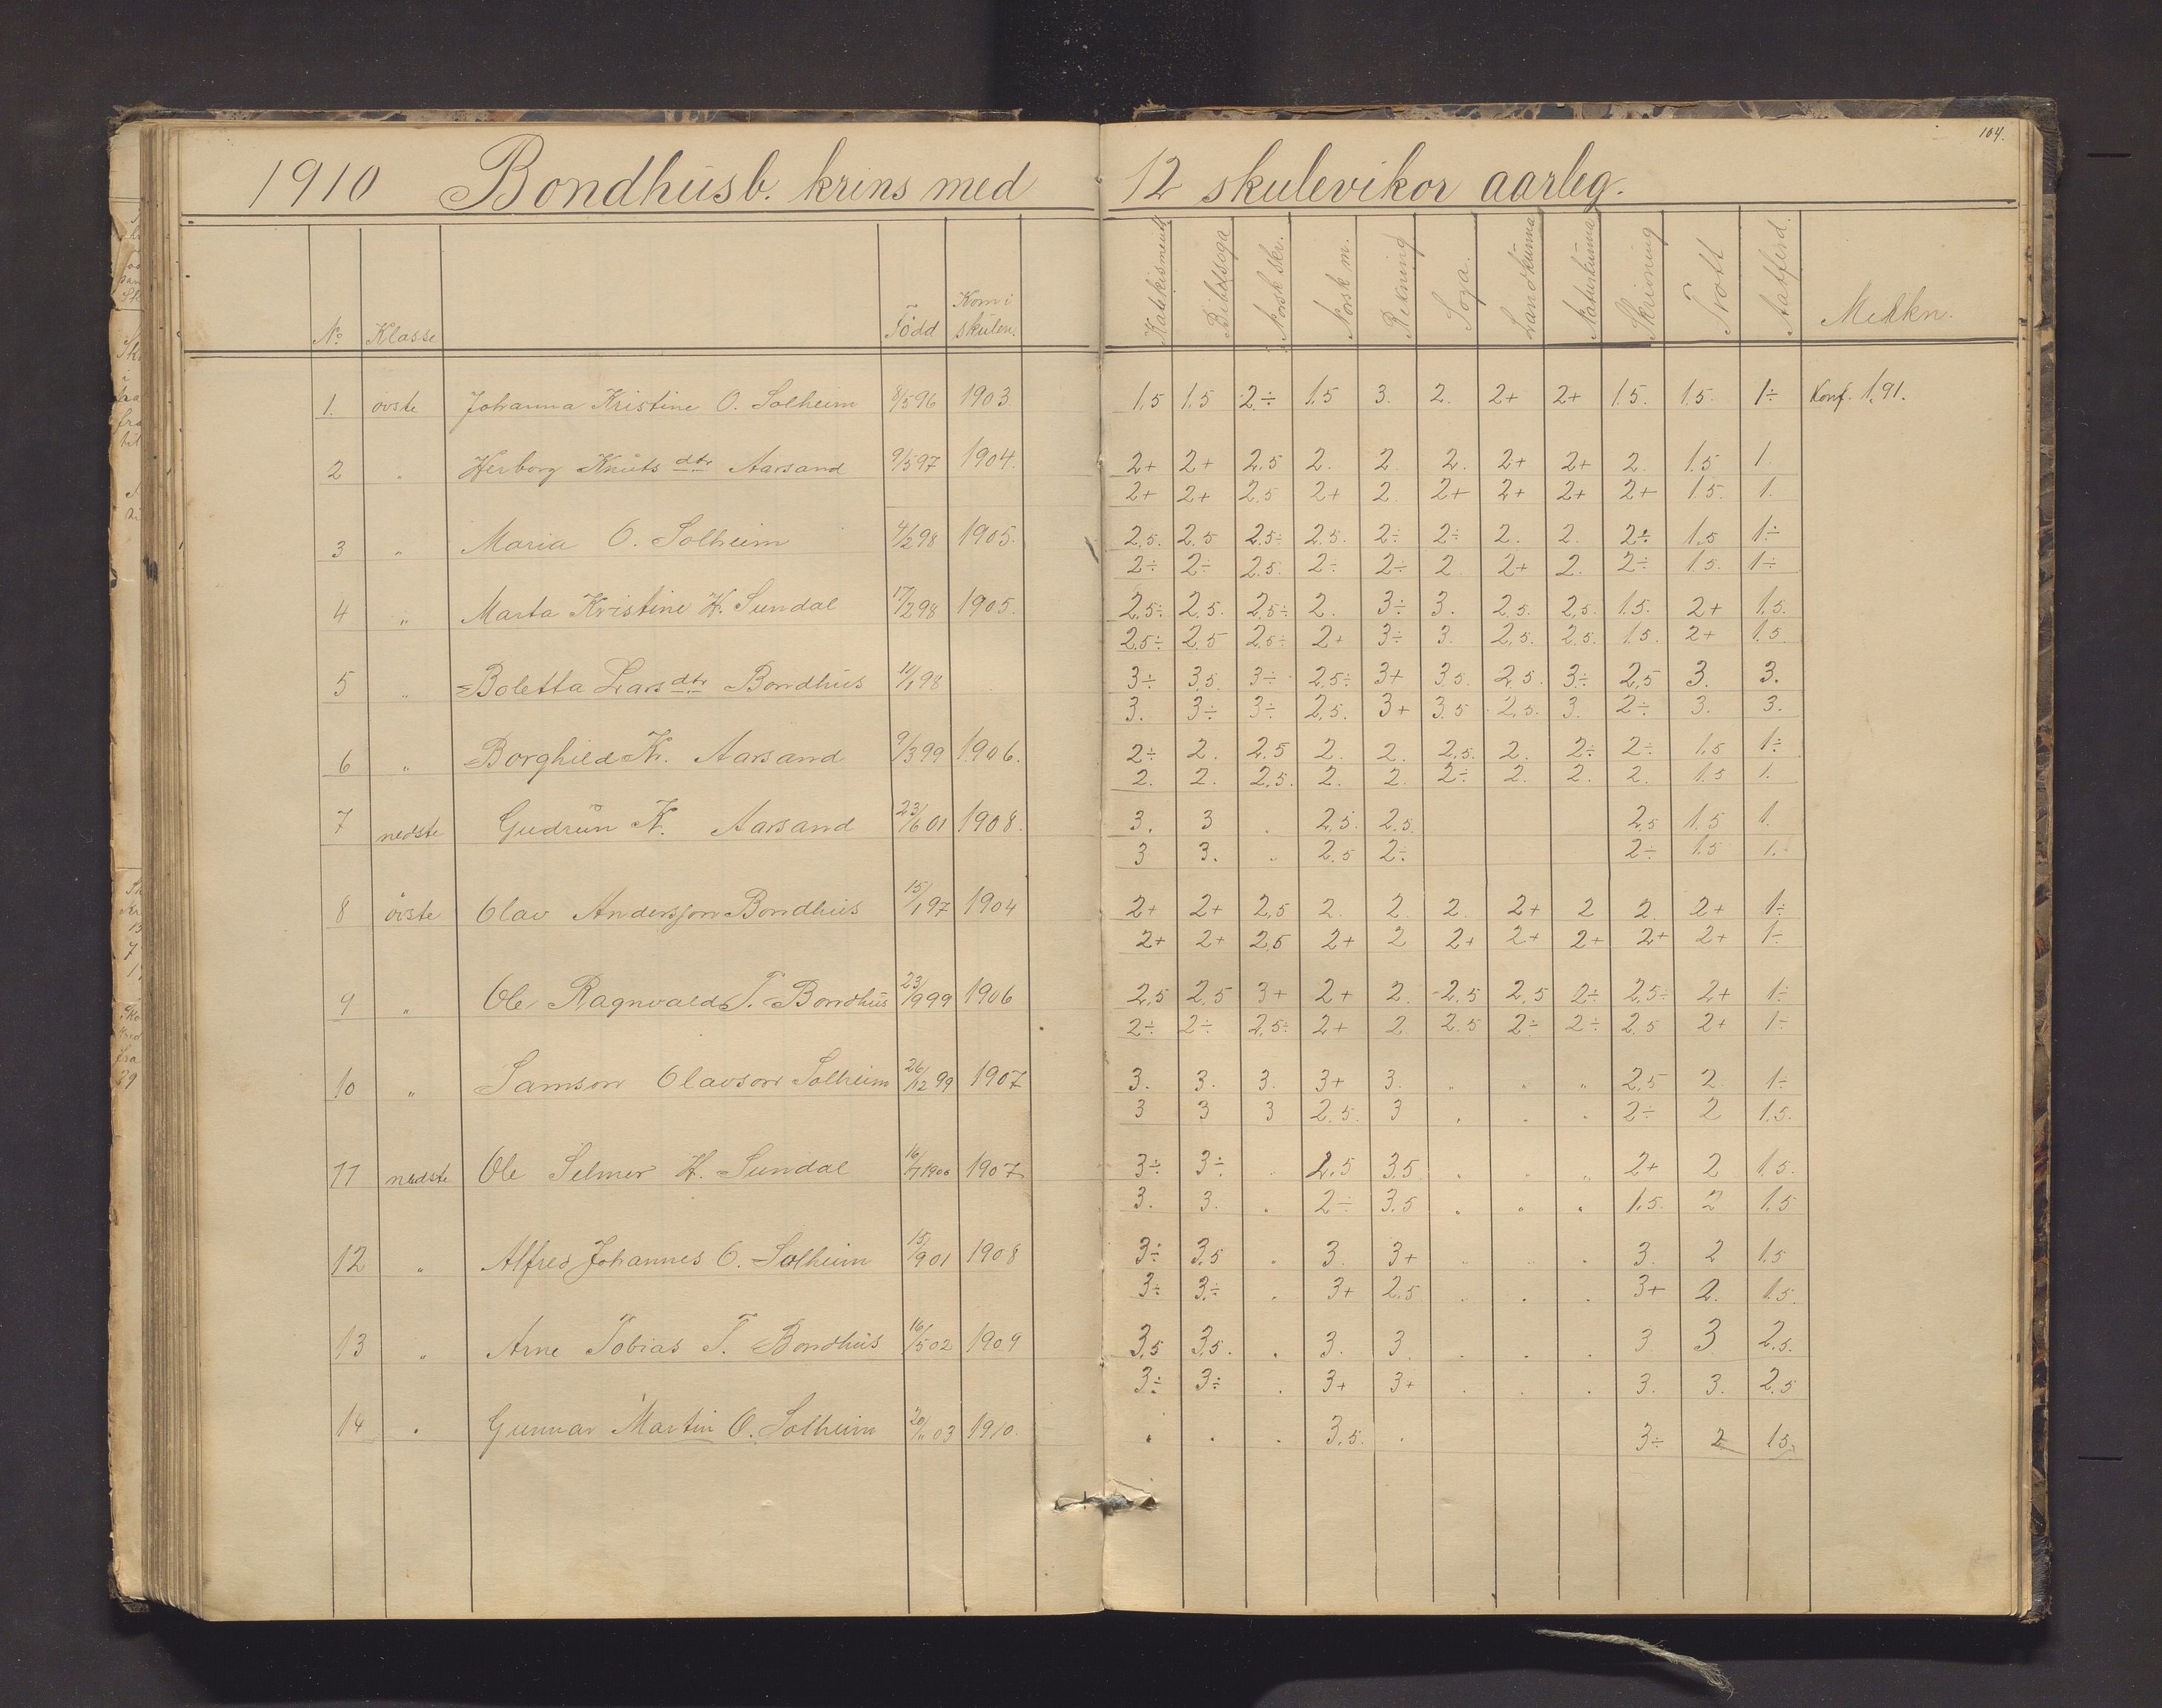 104.
1910 Bondhusb. krins med 12 skulevikor aarleg.
No Klasse Född Kom i skulen. Katekisment Bibelsoga Norsk skr. Norsk m. Rekning Soga. Landkunna Naturkunna Skrivning Trott Aatferd. Merkn.
1. övste Johanna Kristine O. Solheim 8/5 96 1903 1,5 1,5 2÷ 1,5 3. 2. 2+ 2+ 1.5. 1.5. 1÷ Konf. 1,91.
2 " Herborg Knuts dtr Aarsand 9/5 97 1904. 2+ 2+ 2,5 2. 2. 2. 2+ 2+ 2. 1.5 1.
2+ 2+ 2,5 2+ 2. 2+ 2+ 2+ 2+ 1.5. 1.
3 " Maria O. Solheim 4/2 98 1905. 2,5. 2,5 2,5÷ 2,5. 2÷ 2÷ 2. 2. 2÷ 1,5 1÷
2÷ 2÷ 2.5. 2÷ 2÷ 2 2+ 2. 2÷ 1.5. 1÷
4 " Marta Kristine H. Sundal 17/2 98 1905. 2,5÷ 2,5. 2,5÷ 2. 3÷ 3. 2,5. 2,5. 1.5. 2+ 1.5.
2,5÷ 2,5 2,5÷ 2+ 3÷ 3. 2,5. 2.5. 1.5. 2+ 1.5
5 " Boletta Lars dtr Bondhus 11/1 98 3÷ 3,5. 3÷ 2,5÷ 3+ 3.5. 2,5. 3÷ 2,5 3. 3.
3. 3÷ 3÷ 2,5. 3+ 3.5 2,5. 3. 2÷ 3. 3.
6 " Borghild K. Aarsand 9/3 99 1906. 2÷ 2. 2,5 2. 2. 2,5. 2. 2÷ 2÷ 1.5 1÷
2. 2. 2,5. 2. 2. 2÷ 2. 2. 2. 1.5 1.
7 nedste Gudrun K. Aarsand 23/6 01 1908. 3. 3 . 2,5. 2,5. 2,5 1.5 1.
3 3. " 2.5 2÷ 2÷ 1.5 1.
8 övste Olav Andersson Bondhus 15/1 97 1904 2+ 2+ 2,5 2. 2. 2. 2+ 2 2. 2+ 1÷
2+ 2+ 2,5 2+ 2 2+ 2+ 2+ 2+ 2+ 1÷
9 " Ole Ragnvald T. Bondhus 23/9 99 1906 2,5 2,5 3+ 2+ 2. 2,5 2,5 2÷ 2,5÷ 2+ 1÷
2÷ 2÷ 2,5÷ 2+ 2. 2.5 2÷ 2÷ 2.5 2+ 1÷
10 " Samson Olavson Solheim 26/12 99 1907 3. 3. 3. 3+ 3. " " " 2,5 2. 1÷
3 3 3 2.5. 3 . . . 2÷ 2 1.5.
11 nedste Ole Selmer H. Sundal 16/7 1900 1907 3÷ 3÷ . 2,5 3.5 . . " 2+ 2 1.5.
3. 3. . 2÷ 3.5 . . . 1.5. 2 1.5
12 " Alfred Johannes O. Solheim 15/9 01 1908 3÷ 3,5 . 3. 3+ . . . 3. 2 1.5
3÷ 3÷ . 3+ 2.5 . . . 3+ 2. 1.5.
13 " Arne Tobias T. Bondhus 16/5 02 1909 3,5 3,5. . 3. 3. . . . 3 3 2.5.
3÷ 3÷ . 3+ 3+ . . . 3. 3. 2.5
14 " Gunnar Martin O. Solheim 20/11 03 1910. . . . 3.5. . 3÷ 2 1.5.